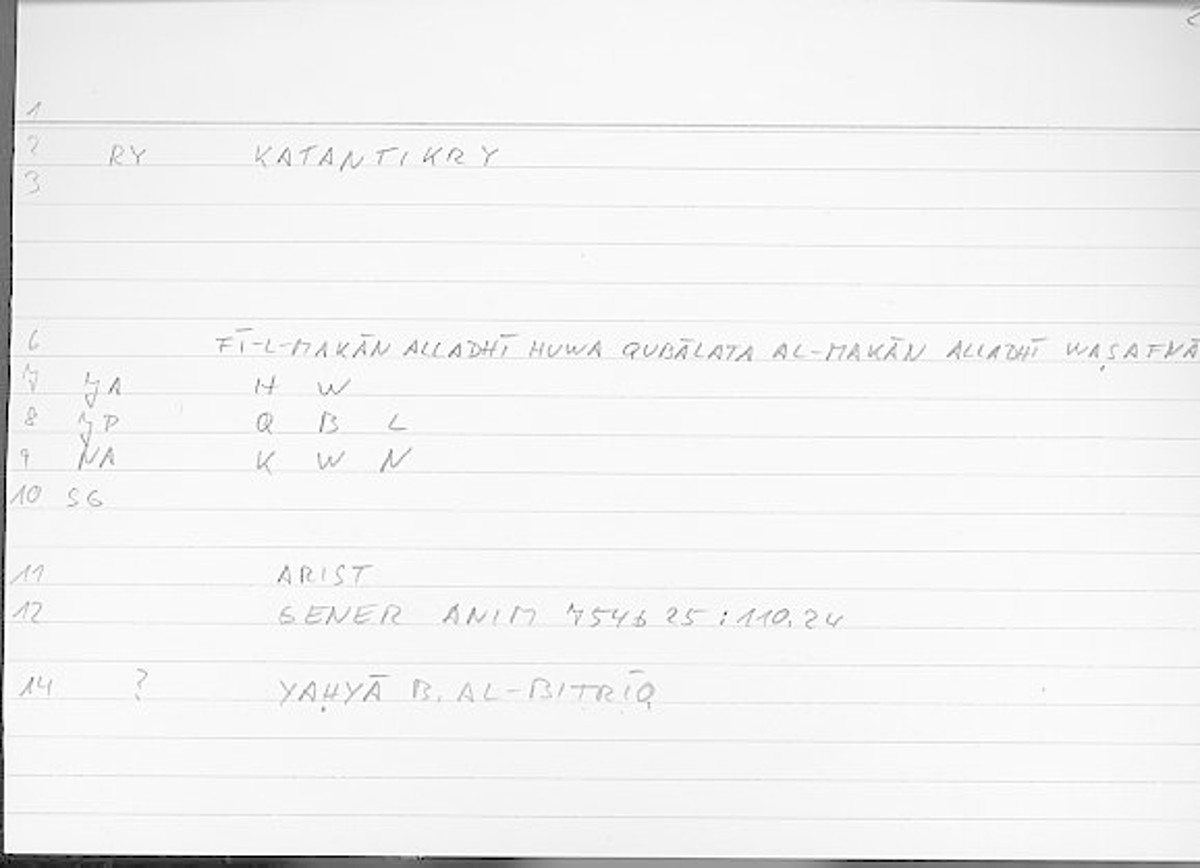 1
2 RY KATANTIKRY
3
6 FĪ-L-MAKĀN ALLADHĪ HUWA QUBĀLATA AL-MAKĀN ALLADHĪ WAṢAFNĀ
7 JA H W
8 JP Q B L
9 NA K W N
10 SG
11 ARIST
12 GENER ANIM 754b25:110.24
14 ? YAḤYĀ B. AL-BITRĪQ